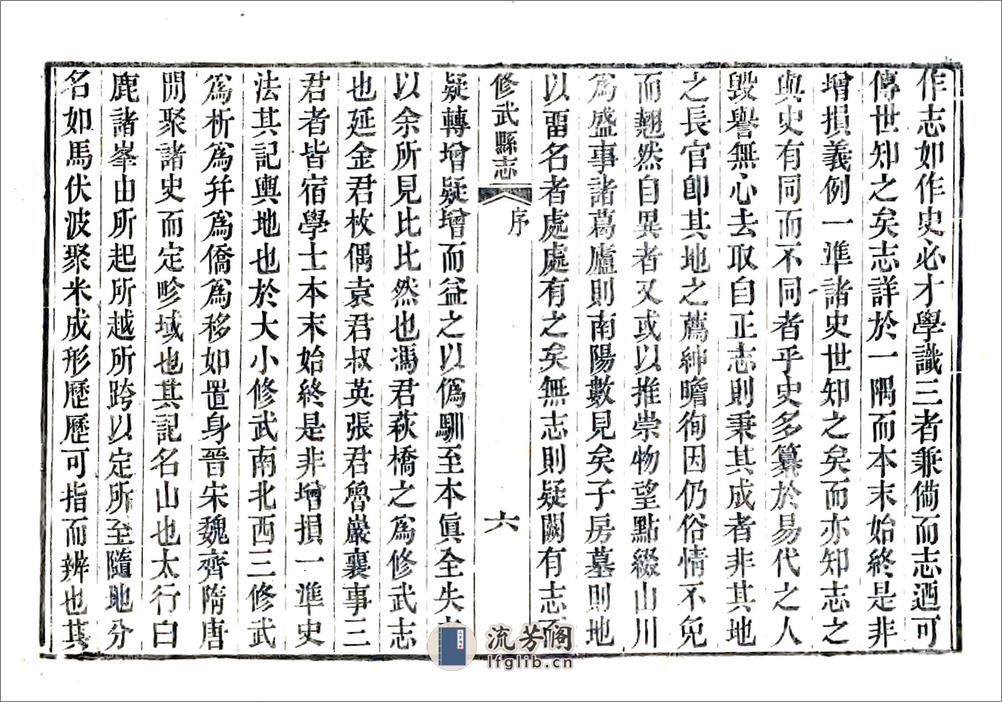 作志如作史必才學識三者兼備而志迺可
傳世知之矣志詳於一隅而本末始終是非
增損義例一準諸史世知之矣而亦知志之
與史有同而不同者乎史多纂於易代之人
毀譽無心去取自正志則秉其成者非其地
之長官卽其地之薦紳瞻徇因仍俗情不免
而翹然自異者又或以推崇物望點綴山川
為盛事諸葛廬則南陽數見矣子房墓則地
以畱名者處處有之矣無志則疑闕有志而
修武縣志 序 六
疑轉增疑增而益之以僞馴至本眞全失
以余所見比比然也馮君萩橋之為修武志
也延金君枚偶袁君叔英張君魯巖襄事三
君者皆宿學士本末始終是非增損一準史
法其記輿地也於大小修武南北西三修武
為析為幷為僑為移如置身晉宋魏齊隋唐
閒聚諸史而定畛域也其記名山也太行白
鹿諸峯由所起所越所跨以定所至隨地分
名如馬伏波聚米成形歷歷可指而辨也其
流芳阁
lfglib.cn